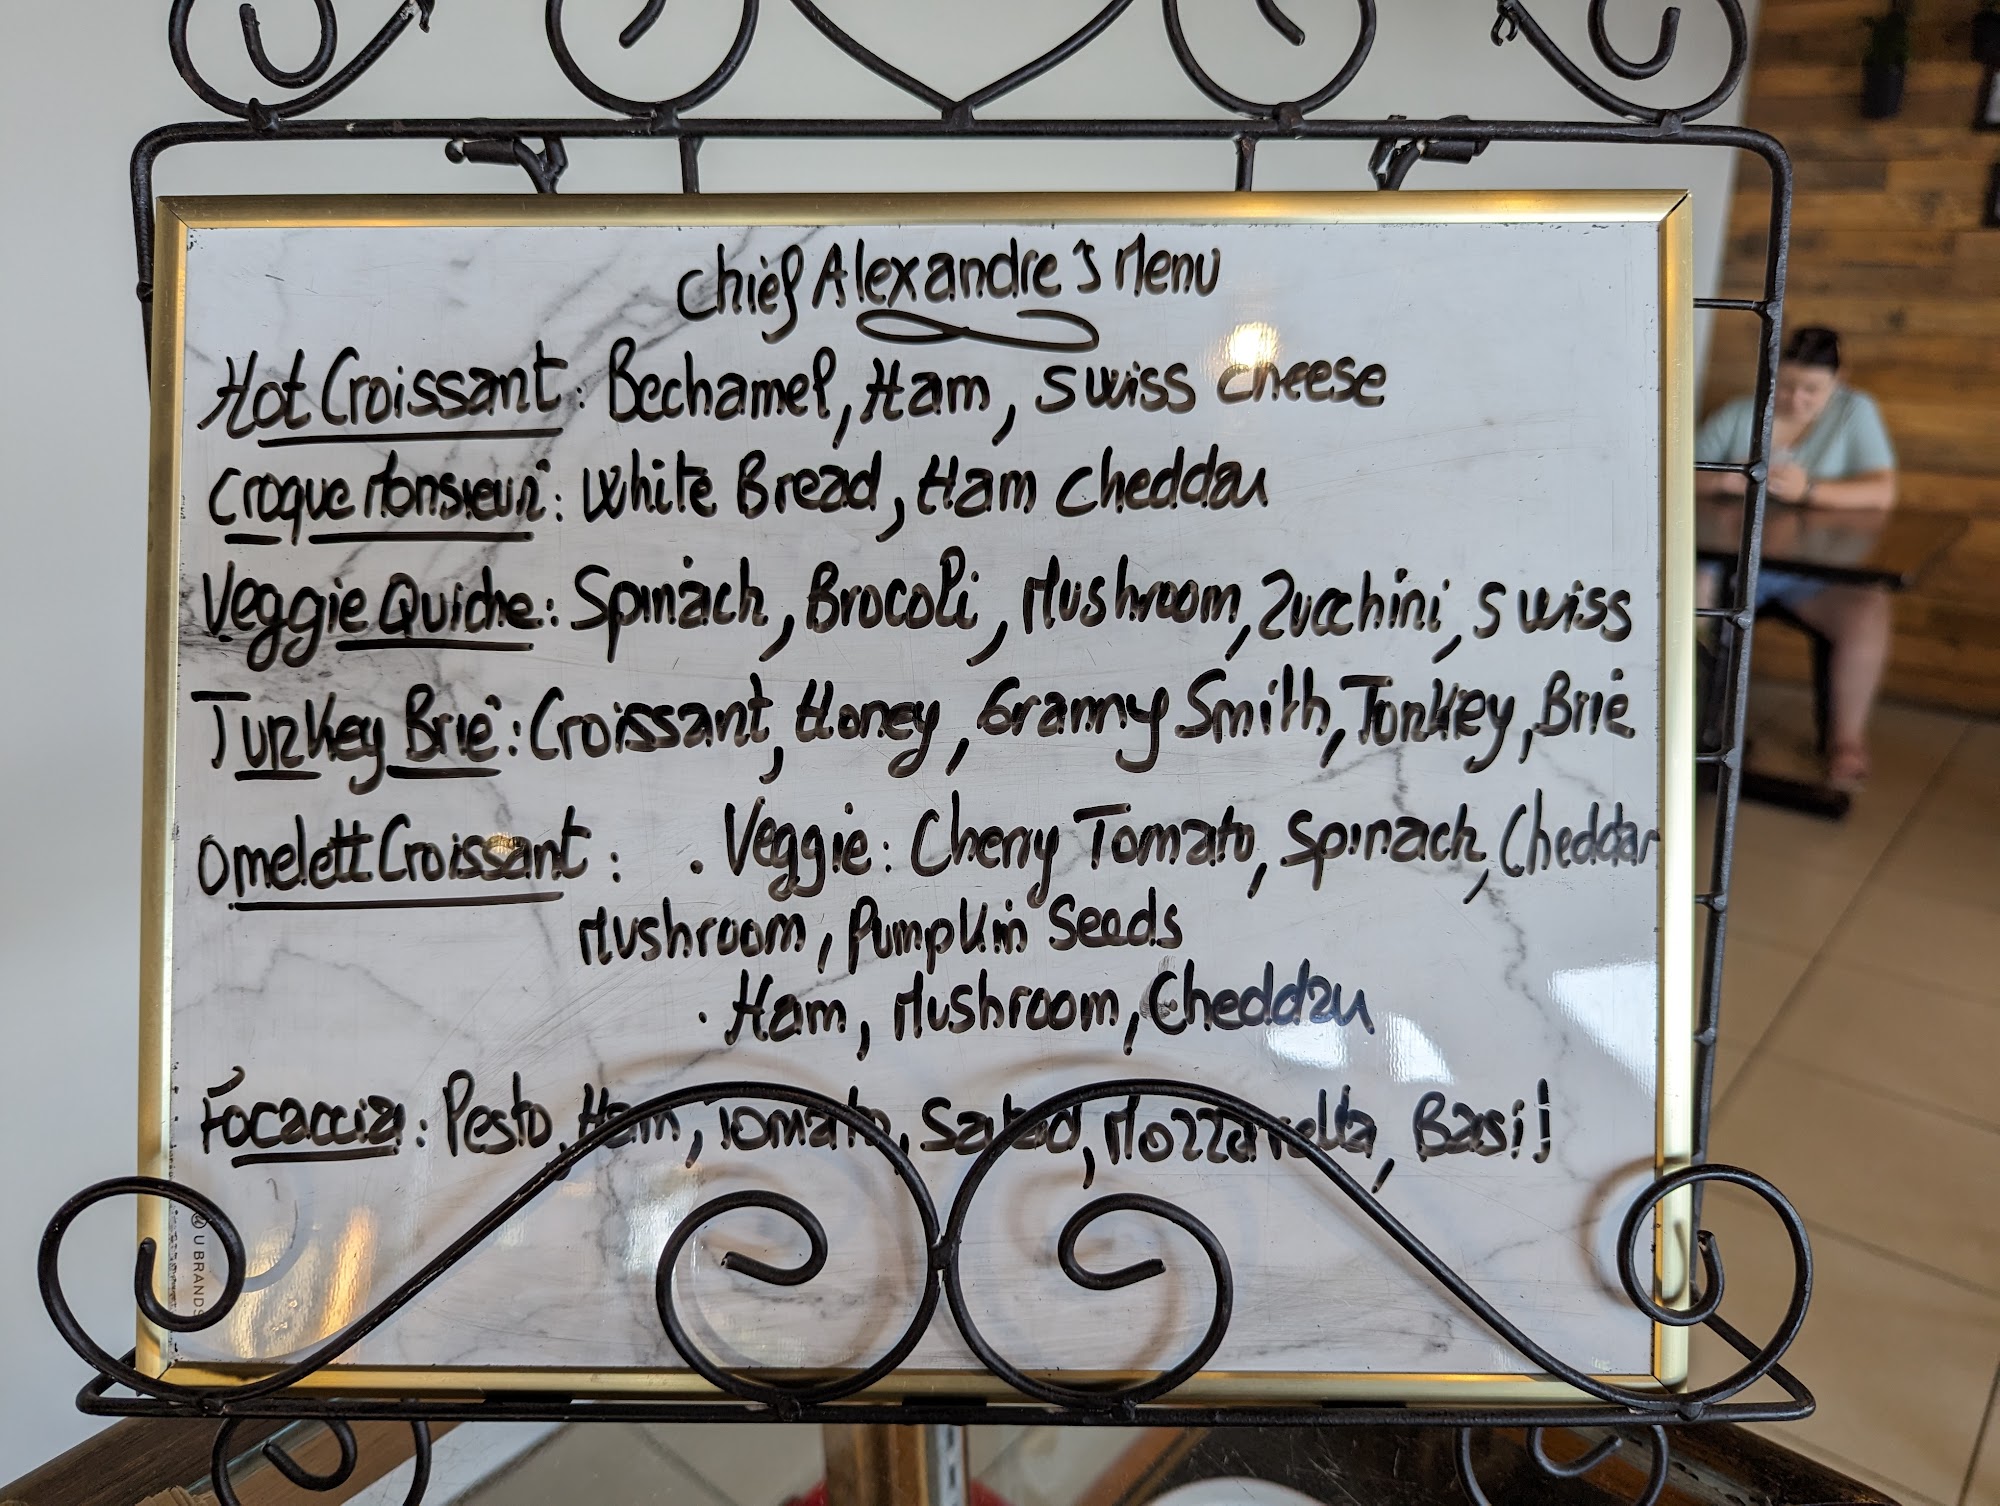 Chief Alexandre's Menu
Hot Croissant: Bechamel, Ham, Swiss cheese
Croque Monsieur: White Bread, Ham Cheddar
Veggie Quiche: Spinach, Brocoli, Mushroom, Zucchini, Swiss
Turkey Brie: Croissant, Honey, Granny Smith, Turkey, Brie
Omelett Croissant: . Veggie: Cherry Tomato, Spinach, Cheddar
Mushroom, Pumpkin Seeds
. Ham, Mushroom, Cheddar
Focaccia: Pesto, Ham, Tomato, Salad, Mozzarella, Basil
U BRANDS